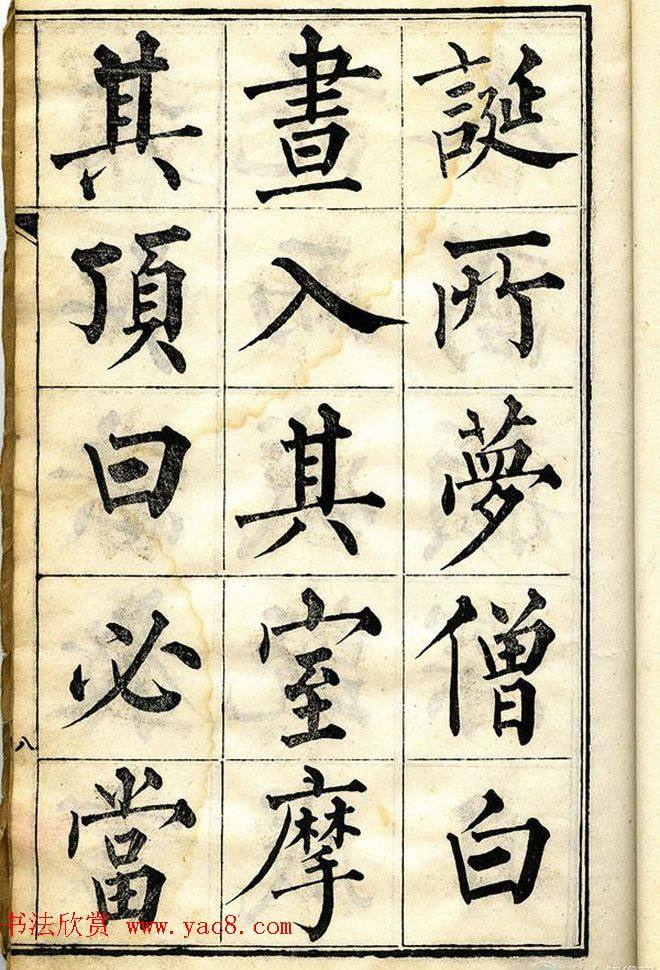 誕所夢僧白
晝入其室摩
其頂曰必當
八
书法欣赏 www.yac8.com